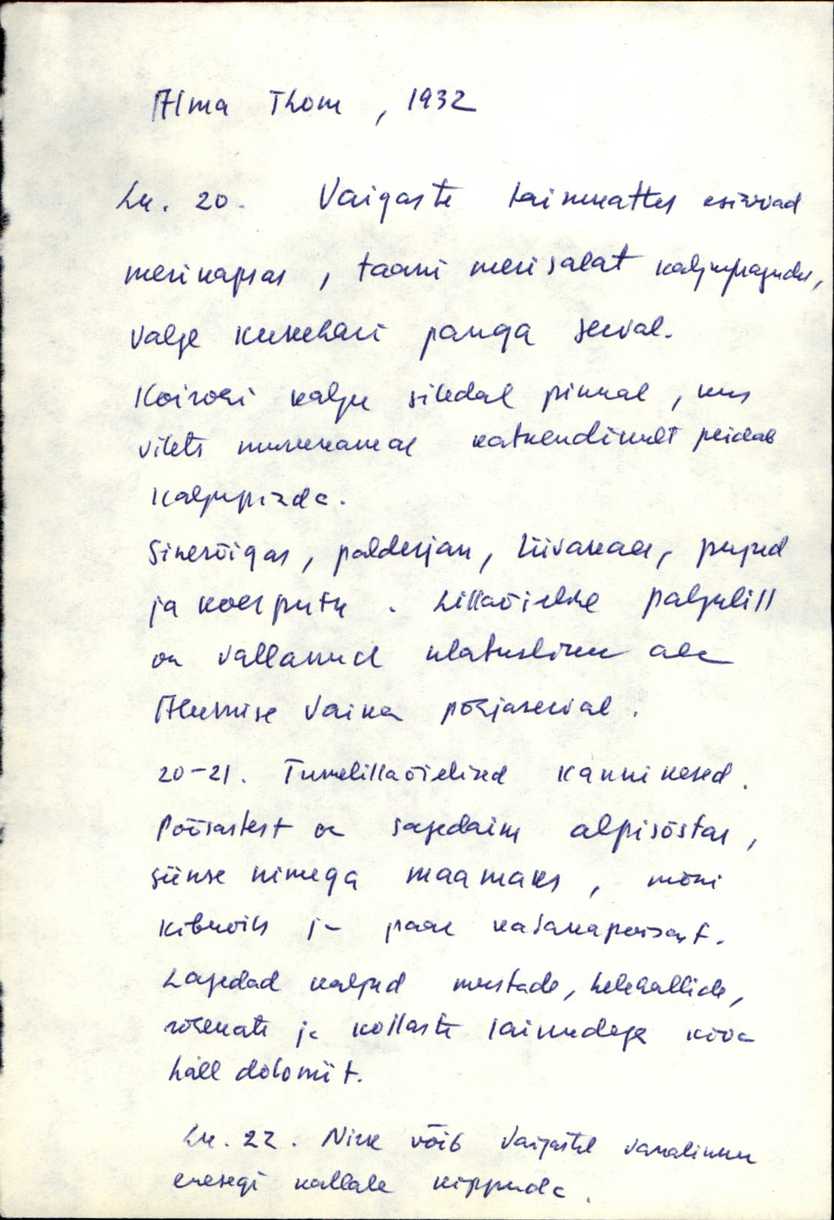 Alma Thom, 1932
Lk. 20. Vaigaste taimkattes esinevad
merikapsas, taani merisalat kaljupragudes,
valge kukehari panga serval.
Koirohi kalju siledal pinnal, kus
vilets murukamar katkendlikult peidab
kaljupinda.
Sinerõigas, palderjan, liivakaer, pujud
ja koerputk. Lillaõielise paljulill
on vallanud ulatuslikku ala
Alumise Vaika põhjaserval.
20-21. Tumelillaõielised kannikesed.
Põõsastest on sagedaim alpisõstar,
siinse nimega maamakes, mõni
kibuvits ja paar kadakapõõsast.
Lagedad kaljud mustade, helehallide,
rohekate ja kollaste laikudega kõva
hall dolomiit.
Lk. 22. Nirk võib Vaigastel vanalinnu
enesegi kallale kippuda.